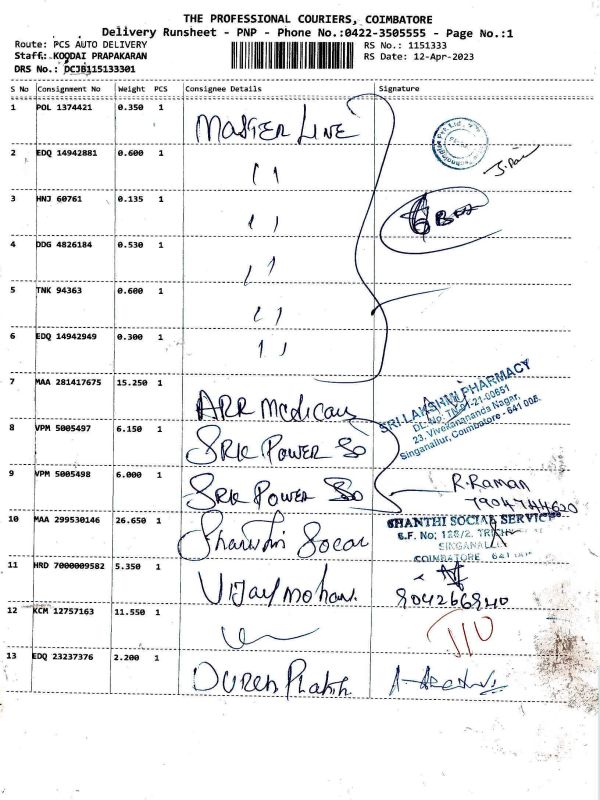 THE PROFESSIONAL COURIERS, COIMBATORE
Delivery Runsheet - PNP - Phone No.:0422-3505555 - Page No.:1
Route: PCS AUTO DELIVERY RS No.: 1151333
Staff.: KOODAI PRAPAKARAN RS Date: 12-Apr-2023
DRS No.: DCJB115133301
S No Consignment No Weight PCS Consignee Details Signature
1 POL 1374421 0.350 1 MASTER LINE
2 EDQ 14942881 0.600 1 ı ı
3 HNJ 60761 0.135 1 ı ı
4 DDG 4826184 0.530 1 ı ı
5 TNK 94363 0.600 1 ı ı
6 EDQ 14942949 0.300 1 ı ı
7 MAA 281417675 15.250 1 ARR Medicals
SRI LAKSHMI PHARMACY
23. Vivekanananda Nagar,
Singanallur, Coimbatore - 641 005.
8 VPM 5005497 6.150 1 SRK POWER So
9 VPM 5005498 6.000 1 SRK POWER So
R.Raman
7904744620
10 MAA 299530146 26.650 1 Shanthi Social
SHANTHI SOCIAL SERVICES
S.F. No: 128/2, TRICHY
SINGANALLUR
COIMBATORE
11 HRD 7000009582 5.350 1 Vijay mohan.
904266940
12 KCM 12757163 11.550 1
13 EDQ 23237376 2.200 1